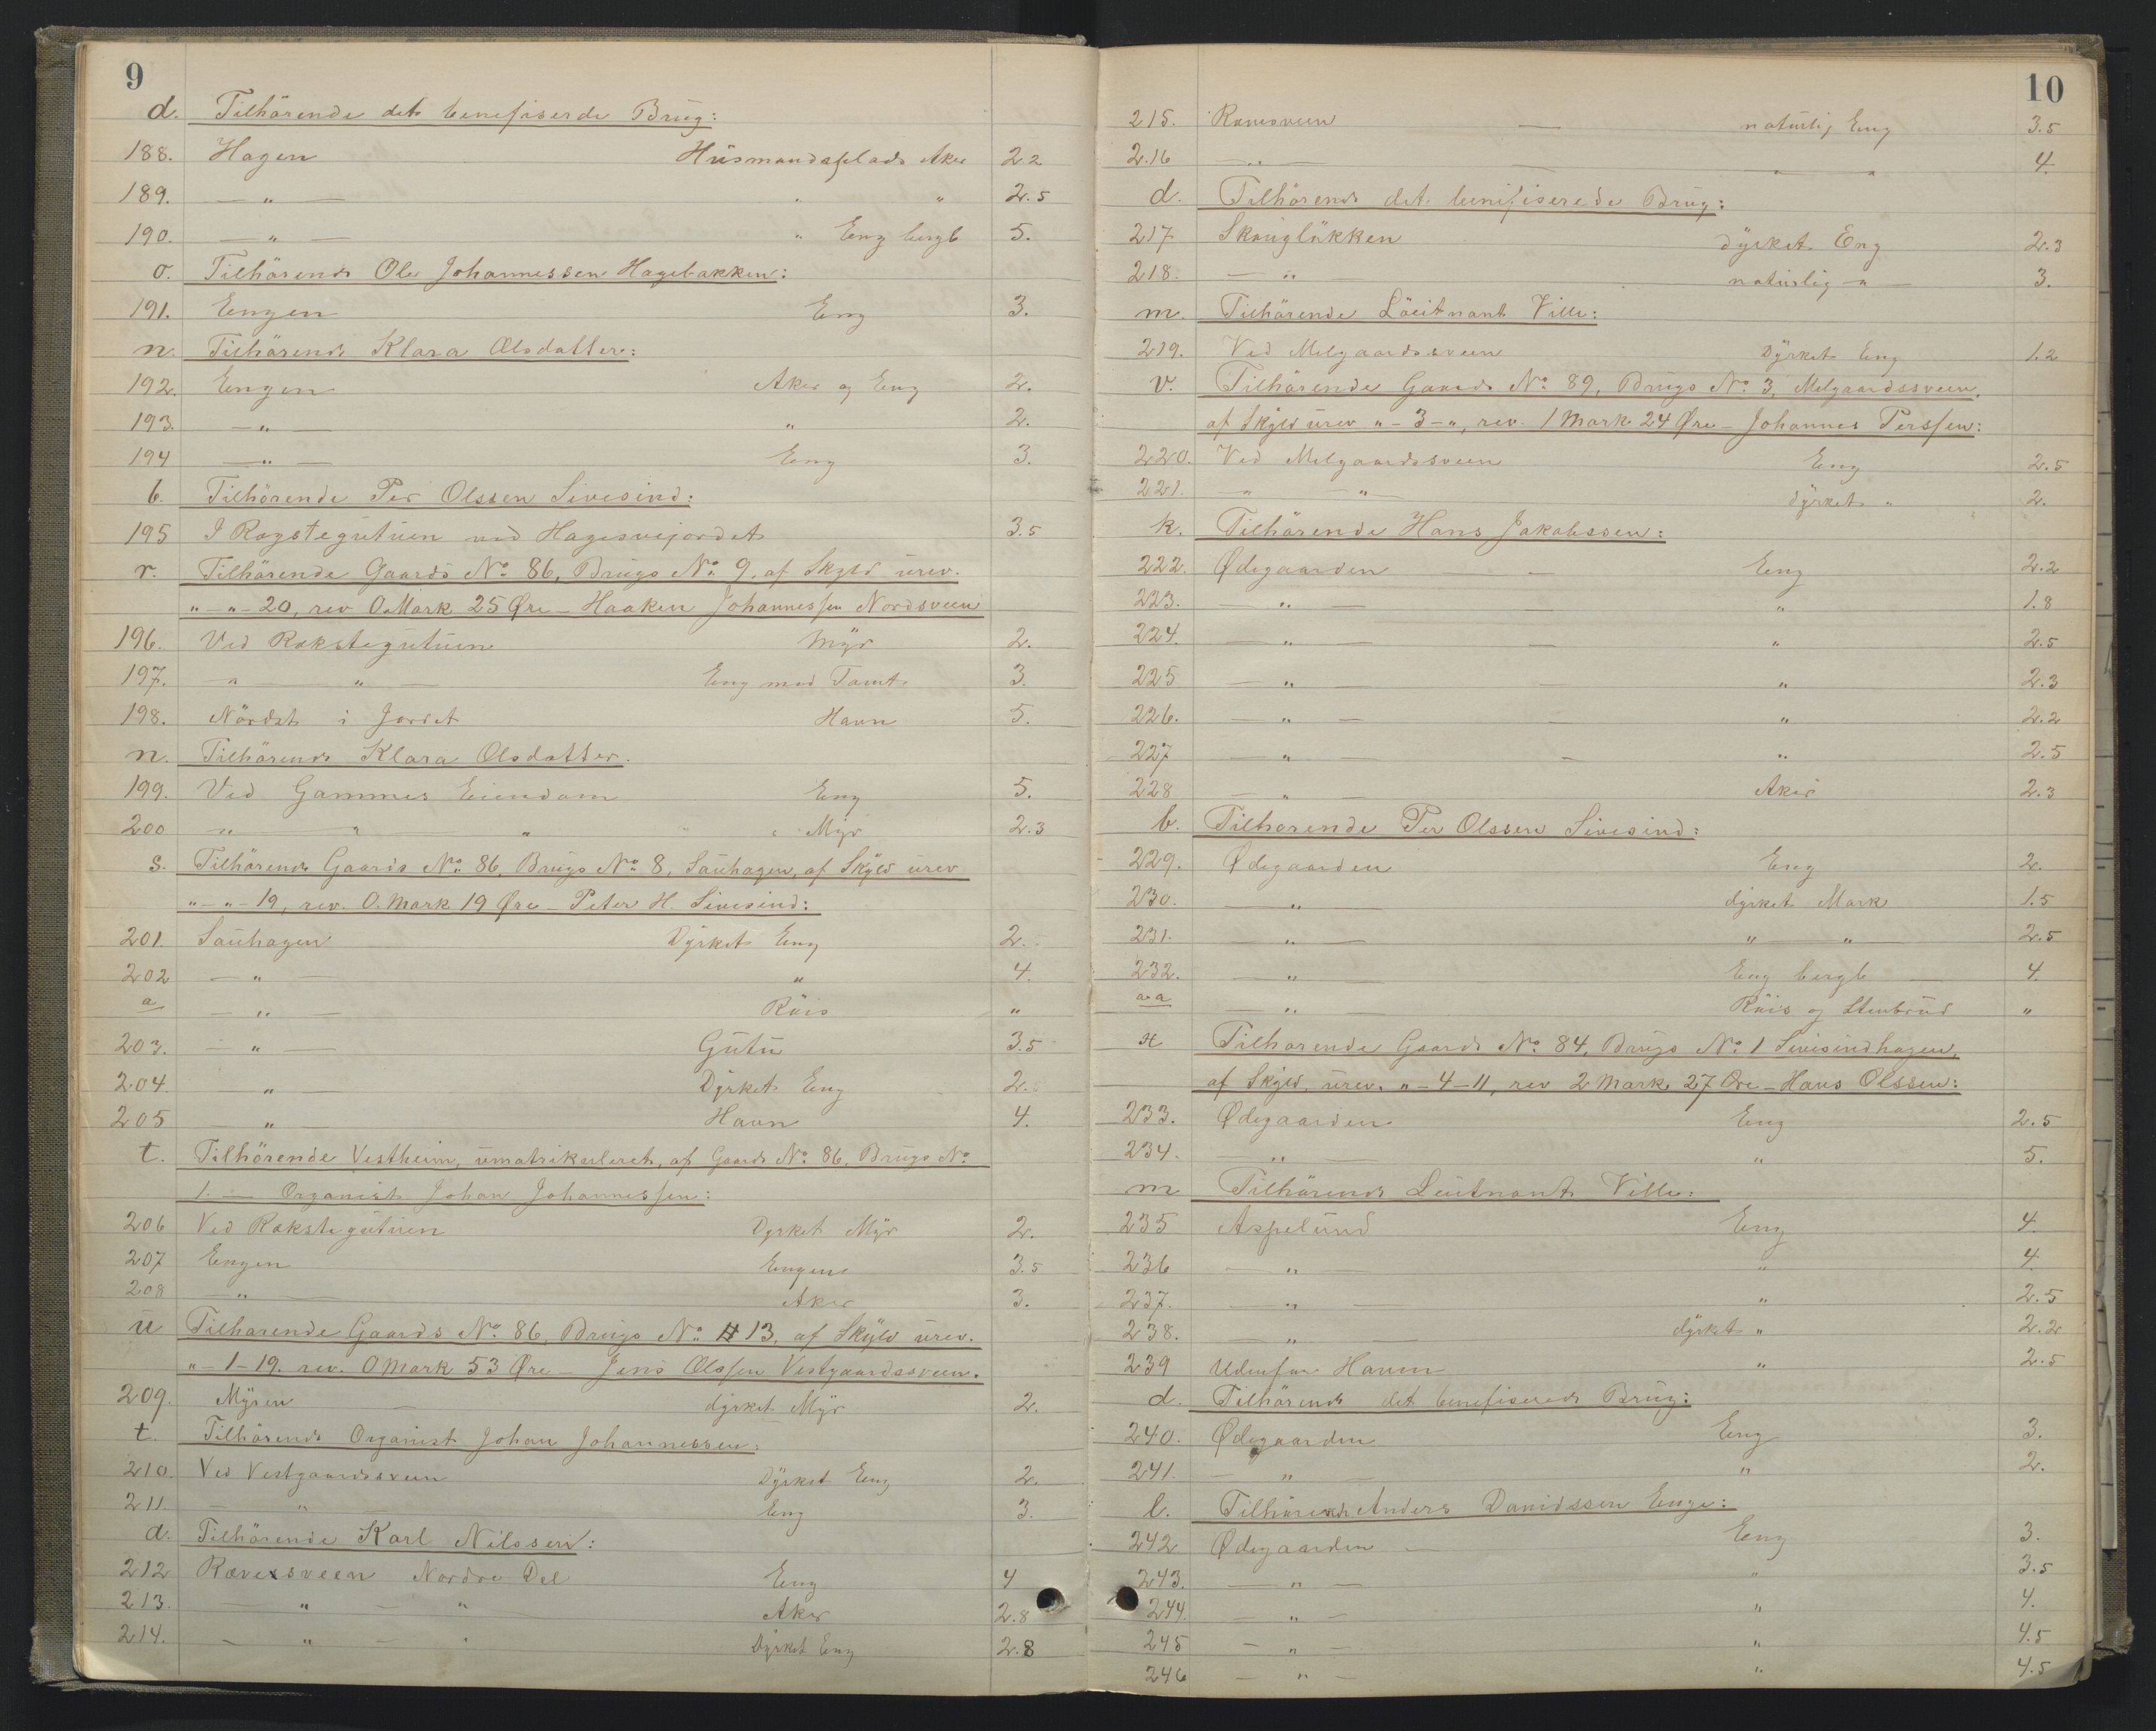 9
d. Tilhörende det benefiserde Brug:
188. Hagen Husmandsplads Aker 2.2
189. — " — " " 2.5
190. — " — " Eng bergl 5.
o. Tilhörende Ole Johannessen Hagebakken:
191. Engen Eng 3.
n. Tilhörende Klara Olsdatter:
192. Engen Aker og Eng 2.
193. — " — " 2.
194 — " — Eng 3.
b. Tilhörende Per Olssen Sivesind:
195 I Rogstegutuen ved Hagesvejordet 3.5
r. Tilhörende Gaards No. 86, Brugs No. 9. af Skyld urev.
" - " - 20, rev 0 Mark 25 Øre — Haaken Johannessen Nordsveen
196. Ved Rokstegutuen Myr 2.
197. — " — " — Eng med Tomt 3.
198. Nordst i Jordet Havn 5.
n. Tilhörende Klara Olsdatter.
199. Ved Gammes Eiendom Eng 5.
200 — " — " — " — " Myr 2.3
s. Tilhörende Gaards No. 86, Brugs No. 8, Sauhagen, af Skyld urev
" - " - 19, rev. 0. Mark 19 Øre — Peter H. Sivesind:
201. Sauhagen Dyrket Eng 2.
202 — " — " 4.
a — " — Röis "
203. — " — Gutu 3.5
204. " Dyrket Eng 2.
205 — " — Havn 4.
t. Tilhörende Vestheim, umatrikuleret, af Gaards No. 86, Brugs No.
1. — Organist Johan Johannessen:
206 Ved Rokstegutuen Dyrket Myr 2.
207 Engen Engen 3.5
208 — " — Aker 3.
u Tilhörende Gaards No. 86, Brugs No. 13, af Skyld urev.
" - 1 - 19. rev. 0 Mark 53 Øre — Jens Olssen Vestgaardssveen.
209. Myren — dyrket Myr 2.
t. Tilhörende Organist Johan Johannessen:
210. Ved Vestgaardssveen Dyrket Eng 2.
211. — " — Eng 3.
d. Tilhörende Karl Nilssen:
212 Rævesveen Nordre Del Eng 4
213. — " — " — Aker 2.8
214. — " — " Dyrket Eng 2.8
10
215. Ravesveen — naturlig Eng 3.5
2.16 — " — — " " 4.
d. Tilhörende det benifiserede Brug:
217 Skouglökken dyrket Eng 2.3
218. — " — naturlig — " — 3.
m. Tilhörende Löeitnant Ville:
219. Ved Melgaardssveen Dyrket Eng 1.2
v. Tilhörende Gaards No. 89, Brugs No. 3, Melgaardssveen,
af Skyld urev " - 3 - ", rev. 1 Mark 24 Øre — Johannes Perssen:
220. Ved Melgaardssveen Eng 2.5
221. " — " — dyrket " 2.
k. Tilhörende Hans Jakobssen:
222. Ødegaarden — Eng 2.2
223. — " — — " 1.8
224. — " — — " 2.5
225 — " — — " 2.3
226. — " — — " 2.2
227 — " — — " 2.5
228 — " — Aker 2.3
b. Tilhorende Per Olssen Sivesind:
229. Ødegaarden Eng 2.
230. — " — dyrket Mark 1.5
231. — " — " — " — 2.5
232. — " Eng bergl — 4.
aa — " — Röis og Stenbrud "
x Tilhorende Gaards No. 84, Brugs No. 1 Sivesindhagen,
af Skyld, urev. " - 4 - 11, rev 2 Mark 27 Øre — Hans Olssen:
233. Ødegaarden Eng 2.5
234. — " — " 5.
m Tilhörende Leutnant Ville:
235 Aspelund Eng 4.
236 — " — " 4.
237. — " — " 2.5
238. — " — dyrket " 2.2
239 Udenfor Havnen " 2.5
d. Tilhörende det benefiserede Brug:
240. Ødegaarden Eng 3.
241. — " — " 2.
l. Tilhörende Anders Davidssen Enge:
242 Ødegaarden — Eng 3.
243. — " — " 3.5
244. — " — " 4.
245 — " — " 4.5
246 — " — " 4.5